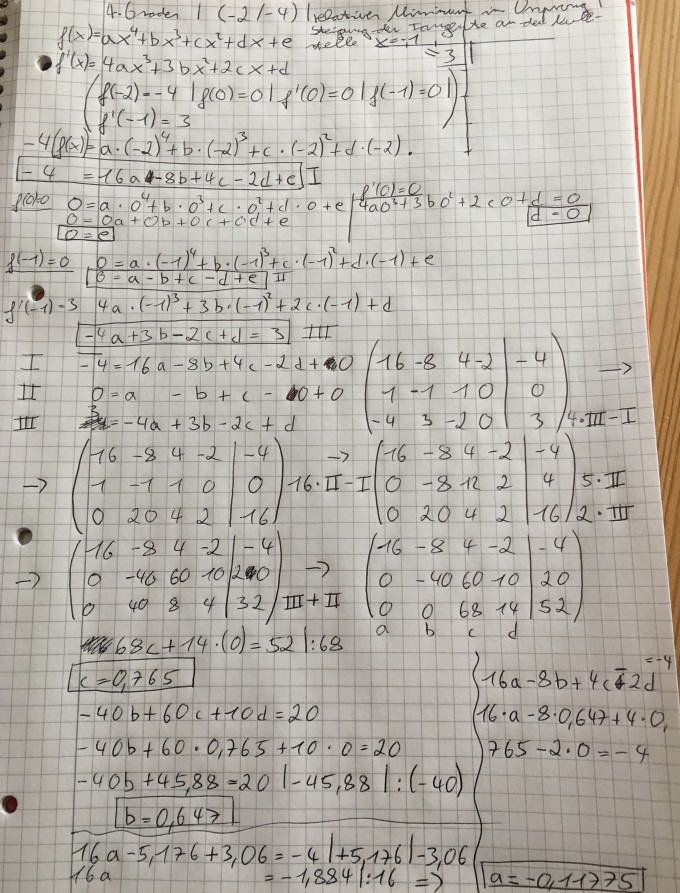 4. Grades | (-2/-4) | relatives Minimum im Ursprung |
Steigung der Tangente an der Null-
f(x)=ax⁴+bx³+cx²+dx+e stelle x=-1
=3
f'(x)=4ax³+3bx²+2cx+d
(f(-2)=-4 | f(0)=0 | f'(0)=0 | f(-1)=0 |
f'(-1)=3)
-4(f(x))=a·(-2)⁴+b·(-2)³+c·(-2)²+d·(-2).
-4 =16a-8b+4c-2d+e I
f(0)=0 0=a·0⁴+b·0³+c·0²+d·0+e
0=0a+0b+0c+0d+e
0=e
f'(0)=0
4a0³+3b0²+2c0+d=0
d=0
f(-1)=0 0=a·(-1)⁴+b·(-1)³+c·(-1)²+d·(-1)+e
0=a-b+c-d+e II
f'(-1)-3 4a·(-1)³+3b·(-1)²+2c·(-1)+d
-4a+3b-2c+d=3 III
I -4=16a-8b+4c-2d+0
II 0=a -b+c-0+0
III 3=-4a+3b-2c+d
(16 -8 4 -2 | -4) →
1 -1 1 0 | 0
-4 3 -2 0 | 3) 4·III-I
(16 -8 4 -2 | -4) →
→ 1 -1 1 0 | 0 16·II-I
0 20 4 2 | 16)
(16 -8 4 -2 | -4)
0 -8 12 2 | 4 5·II
0 20 4 2 | 16) 2·III
(16 -8 4 -2 | -4)
→ 0 -40 60 10 | 20 →
0 40 8 4 | 32) III+II
(16 -8 4 -2 | -4)
0 -40 60 10 | 20
0 0 68 14 | 52)
a b c d
68c+14·(0)=52 |:68
c=0,765
-40b+60c+10d=20
-40b+60·0,765+10·0=20
-40b+45,88=20 |-45,88 |:(-40)
b=0,647
=-4
16a-8b+4c-2d
16·a-8·0,647+4·0,
765-2·0=-4
16a-5,176+3,06=-4 |+5,176 |-3,06
16a =-1,884 |:16 => a=-0,11775